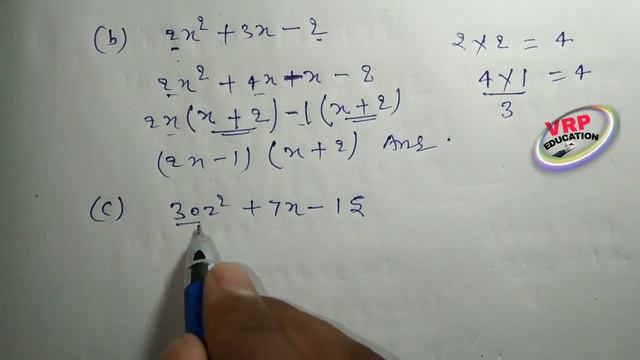 (b) 2x² + 3x - 2
2x² + 4x - x - 2
2x(x+2) - 1(x+2)
(2x-1) (x+2) Ans.
2 × 2 = 4
4 × 1 = 4
3
VRP
EDUCATION
(c) 30x² + 7x - 15